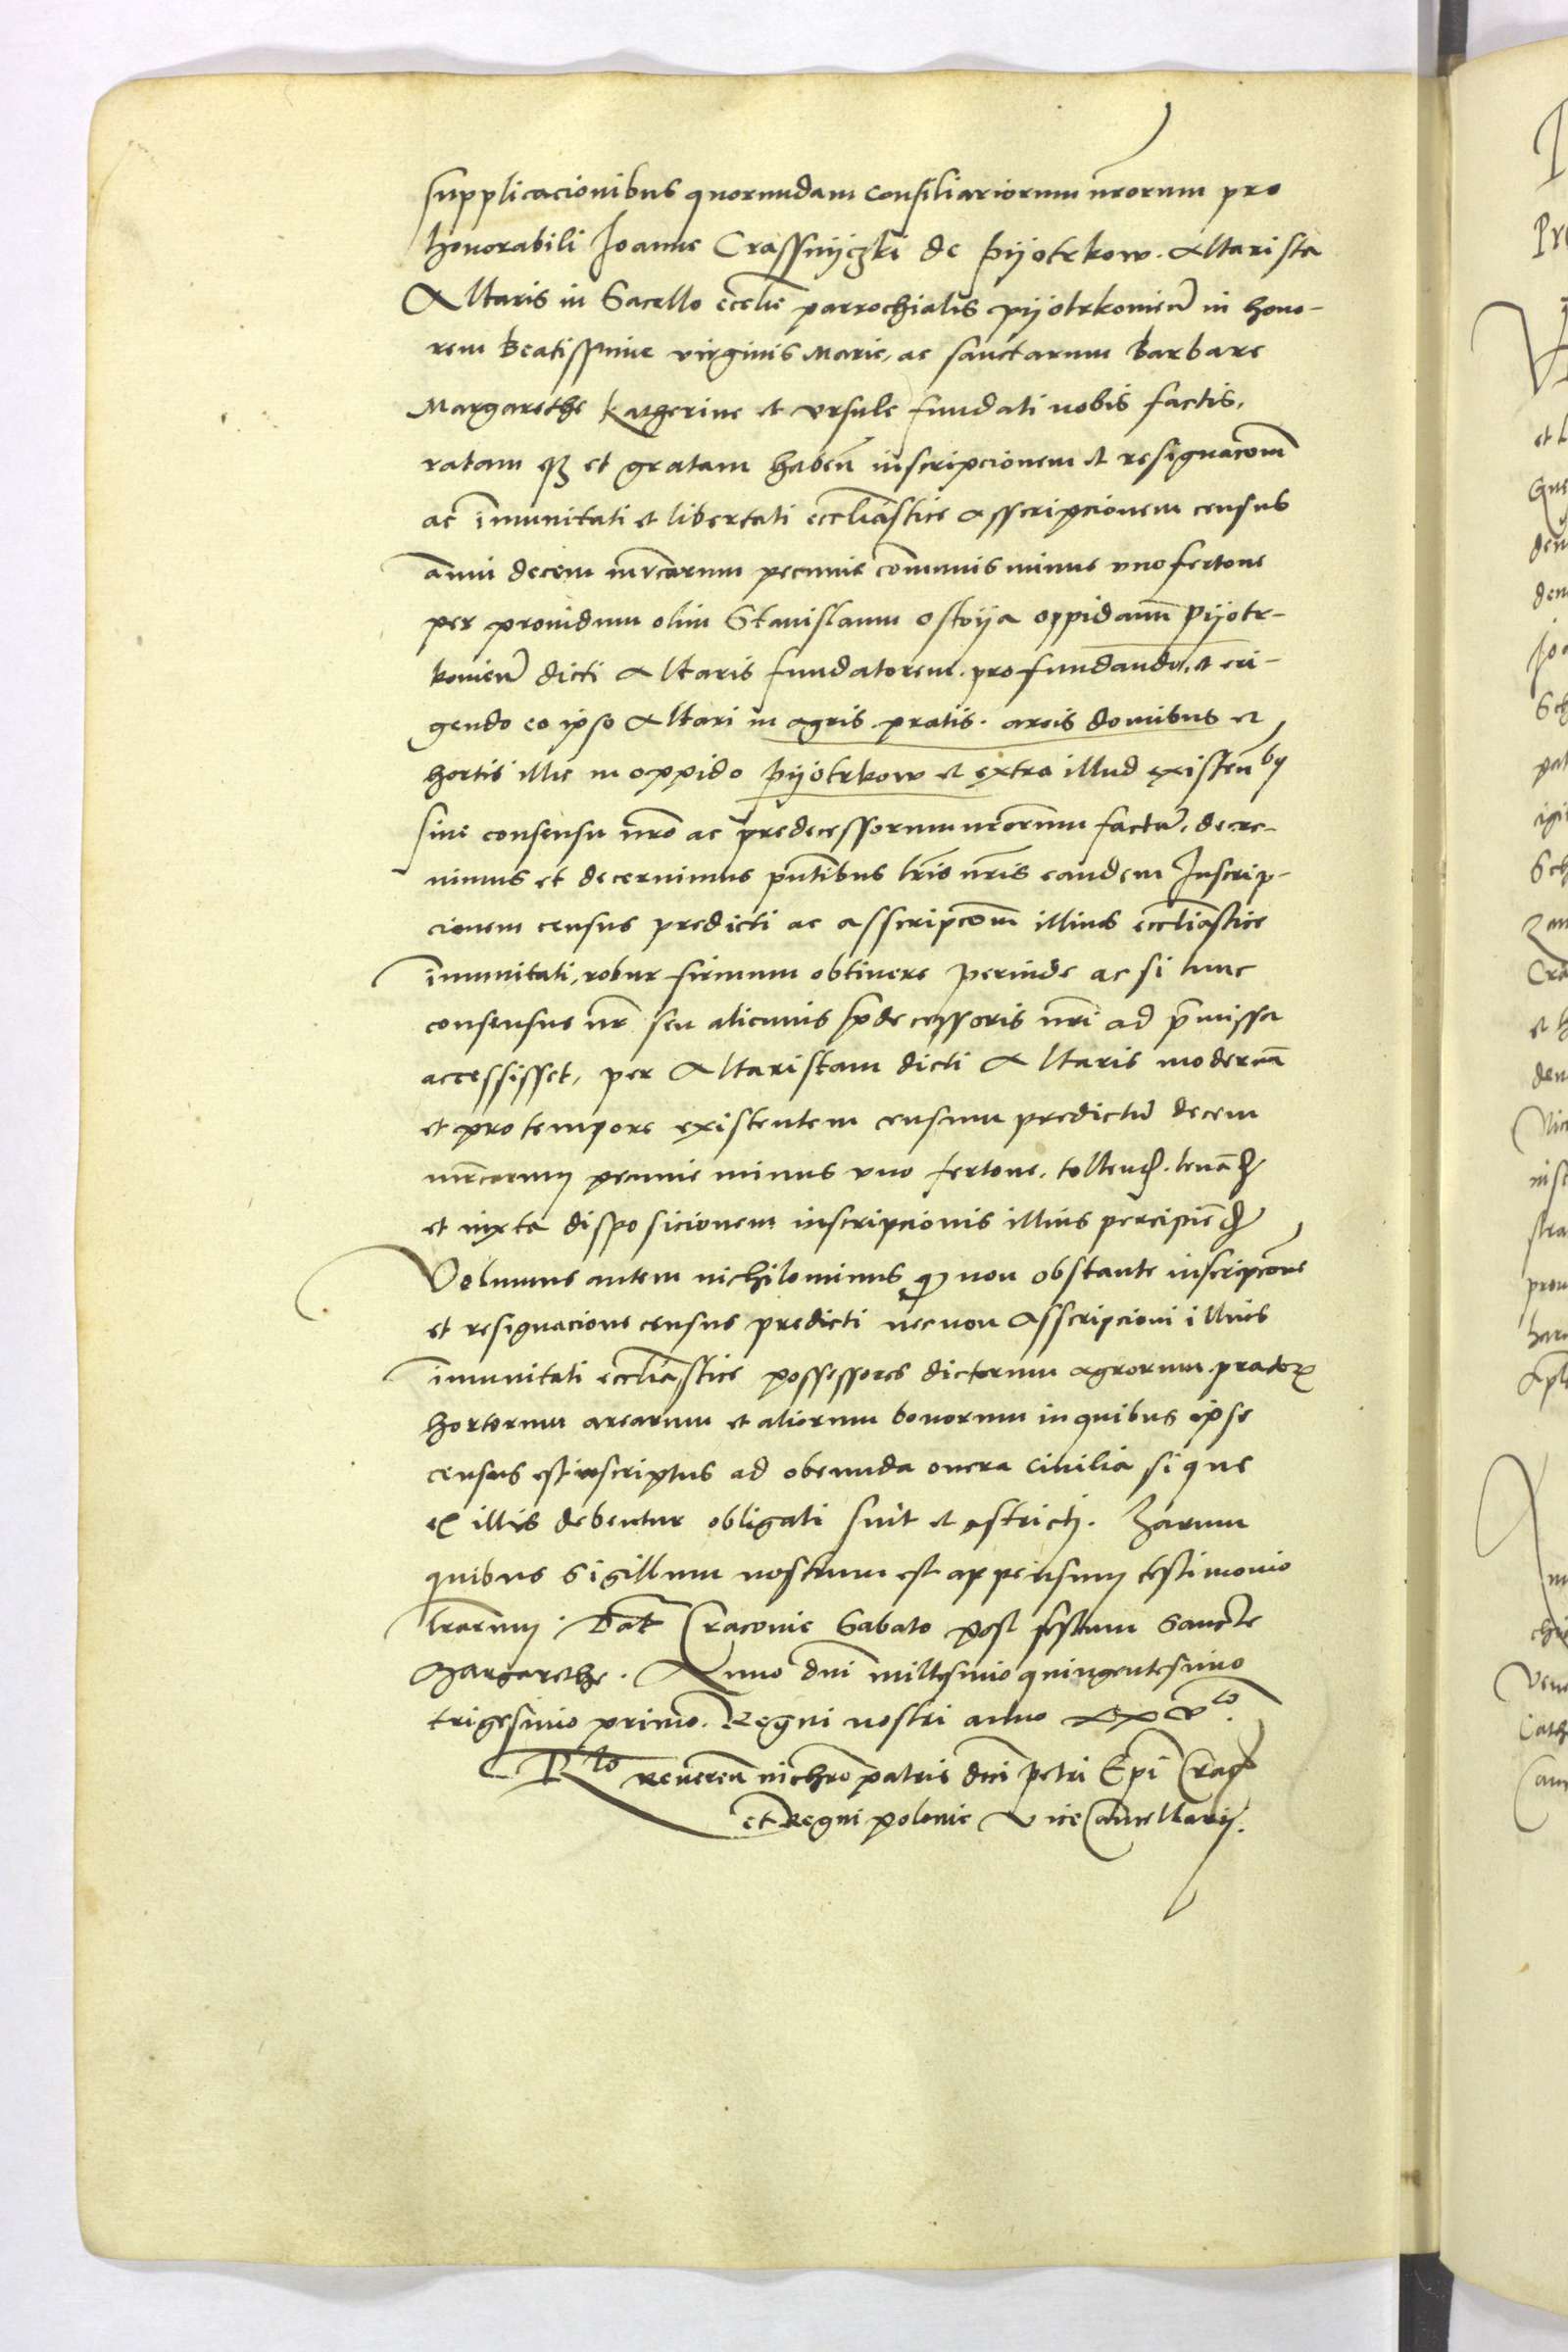 supplicacionibus quorundam consiliariorum nrorum pro
honorabili Joanne Crassnyczki de Pyotrkow. Altarista
Altaris in Sacello eccłie parrochialis pyotrkovieñ in hono-
rem Beatissime virginis Marie, ac sanctarum Barbare
Margarethe Katherine et Ursule fundati nobis factis,
ratam qȝ et gratam habeñ inscripcionem et resignacõem
ac imunitati et libertati eccłiastice asscripcionem census
annui decem mrcarum pecunie comunis minus uno fertone
per providum olim Stanislaum Ostoya oppidanum Pyotr-
kovieñ dicti Altaris fundatorem. pro fundando, et eri-
gendo eo ipso Altari in agris. pratis. areis domibus et
hortis illic in oppido Pyotrkow et extra illud existeñbȝ
sine consensu nro ac predecessorum nrorum factã, decre-
vimus et decernimus pñtibus lrís nrís eandem Inscrip-
cionem census predicti ac asscripcõem illius eccłiastice
imunitati, robur firmum obtinere perinde ac si tunc
consensus nr seu alicuius p̃decessoris nrí ad p̃missa
accessisset, per Altaristam dicti Altaris modernũ
et pro tempore existentem censum predictũ decem
mrcarum pecunie minus uno fertone. tolleñd. levañd
et iuxta disposicionem inscripcionis illius percipieñd
Volumus autem nichilominus qȝ non obstante inscripcõne
et resignacione census predicti necnon asscripcioni illius
imunitati eccłiastice possessores dictorum agrorum, pratorꝝ
hortorum arearum et aliorum bonorum in quibus ipse
census est inscriptus ad obeunda onera civilia si que
ex illis debentur obligati sint et astricti. Harum
quibus Sigillum nostrum est appensum testimonio
lrarum. Dat Cracovie Sabato post festum Sancte
Margarethe. Anno dni millesimo quingentesimo
trigesimo primo. Regni nostri anno XXVto.
Rlo revereñ in chro patris dni Petri Epi Crac
et Regni polonie Vice Cancellarij.